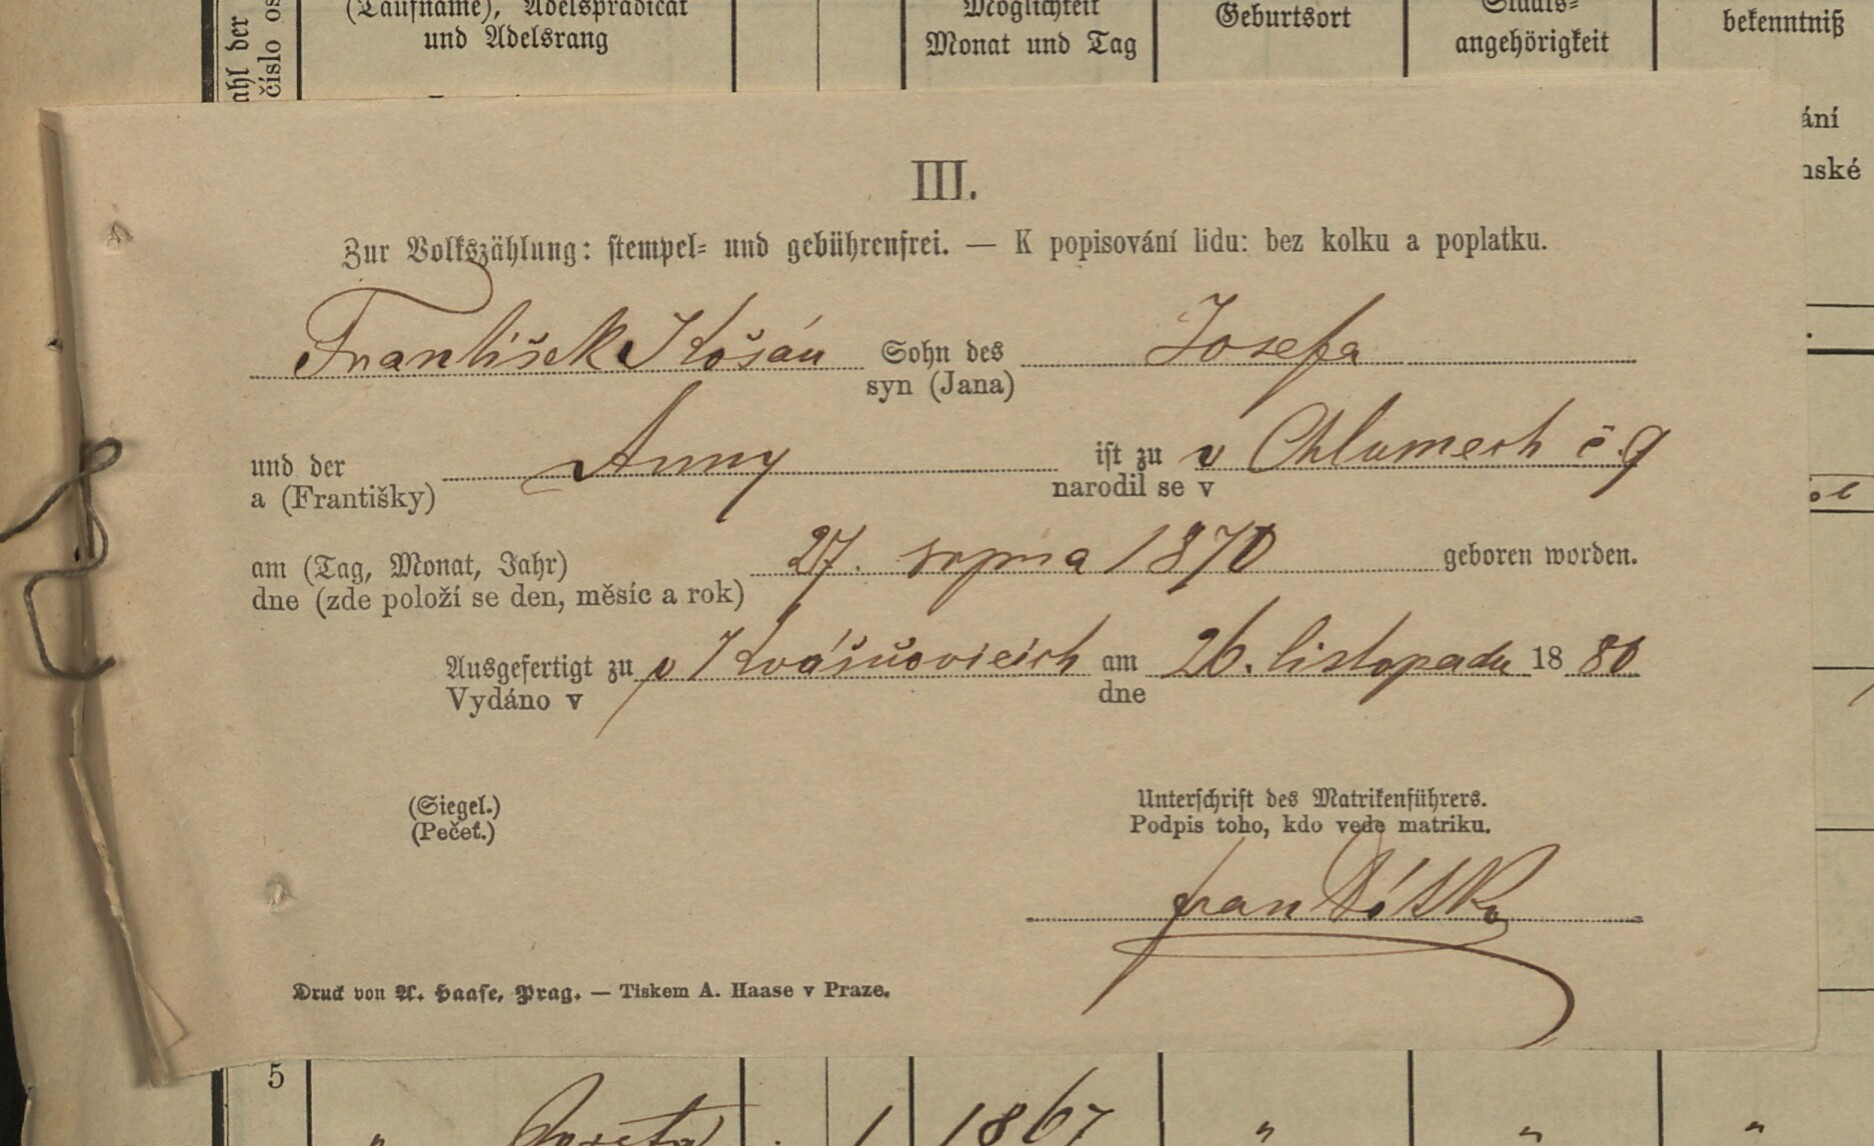 ahl der
číslo os
(Taufname), Adelsprädicat
und Adelsrang
Möglichkeit
Monat und Tag
Geburtsort
Staats-
angehörigkeit
bekenntniß
ání
nské
III.
Zur Volkszählung: stempel- und gebührenfrei. — K popisování lidu: bez kolku a poplatku.
František Košán Sohn des Josefa
syn (Jana)
und der Anny ist zu v Chlumech č. 9
a (Františky) narodil se v
am (Tag, Monat, Jahr) 27. srpna 1870 geboren worden.
dne (zde položí se den, měsíc a rok)
Ausgefertigt zu v Kvášňovicích am 26. listopadu 18 80
Vydáno v dne
(Siegel.)
(Pečeť.)
Unterschrift des Matrikenführers.
Podpis toho, kdo vede matriku.
Druck von A. Haase, Prag. — Tiskem A. Haase v Praze.
5
" Josefa 1 1867 " " "